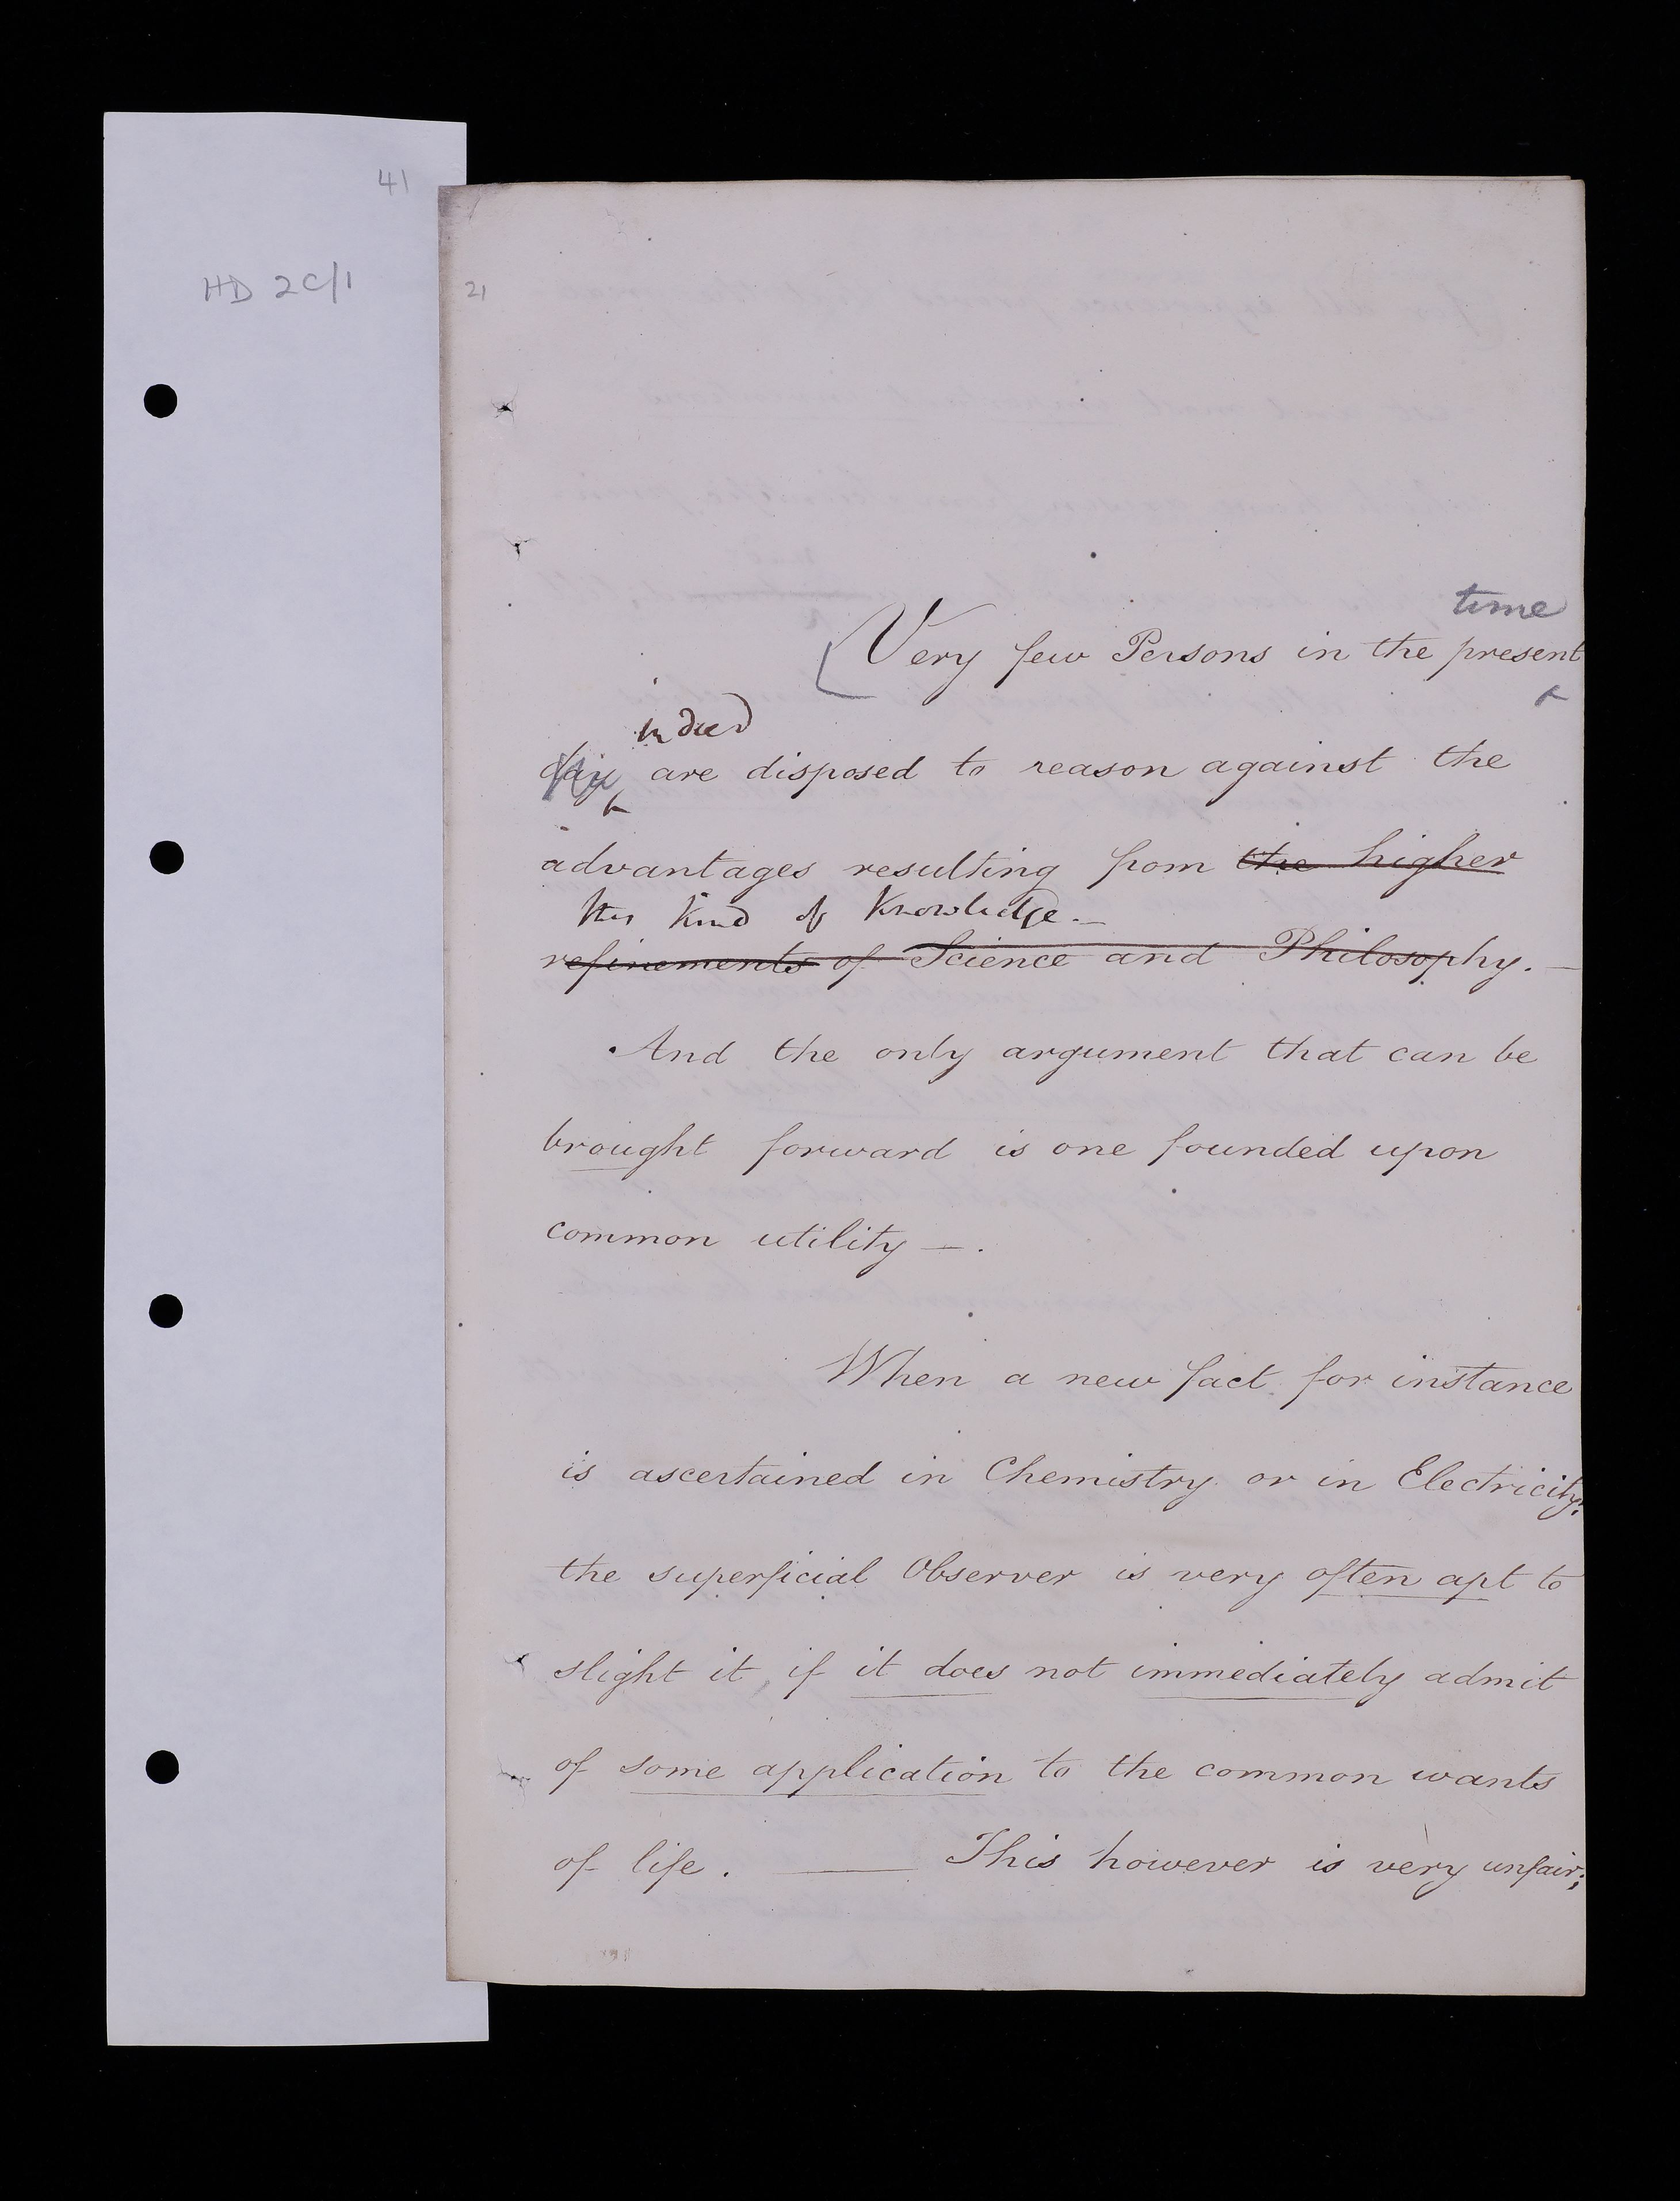 41
HD 2C/1
21
time
Very few Persons in the present
indeed
day are disposed to reason against the
advantages resulting from the higher
this kind of Knowledge. —
refinements of Science and Philosophy. —
And the only argument that can be
brought forward is one founded upon
common utility — .
When a new fact for instance
is ascertained in Chemistry or in Electricity;
the superficial Observer is very often apt to
slight it, if it does not immediately admit
of some application to the common wants
of life. —— This however is very unfair;